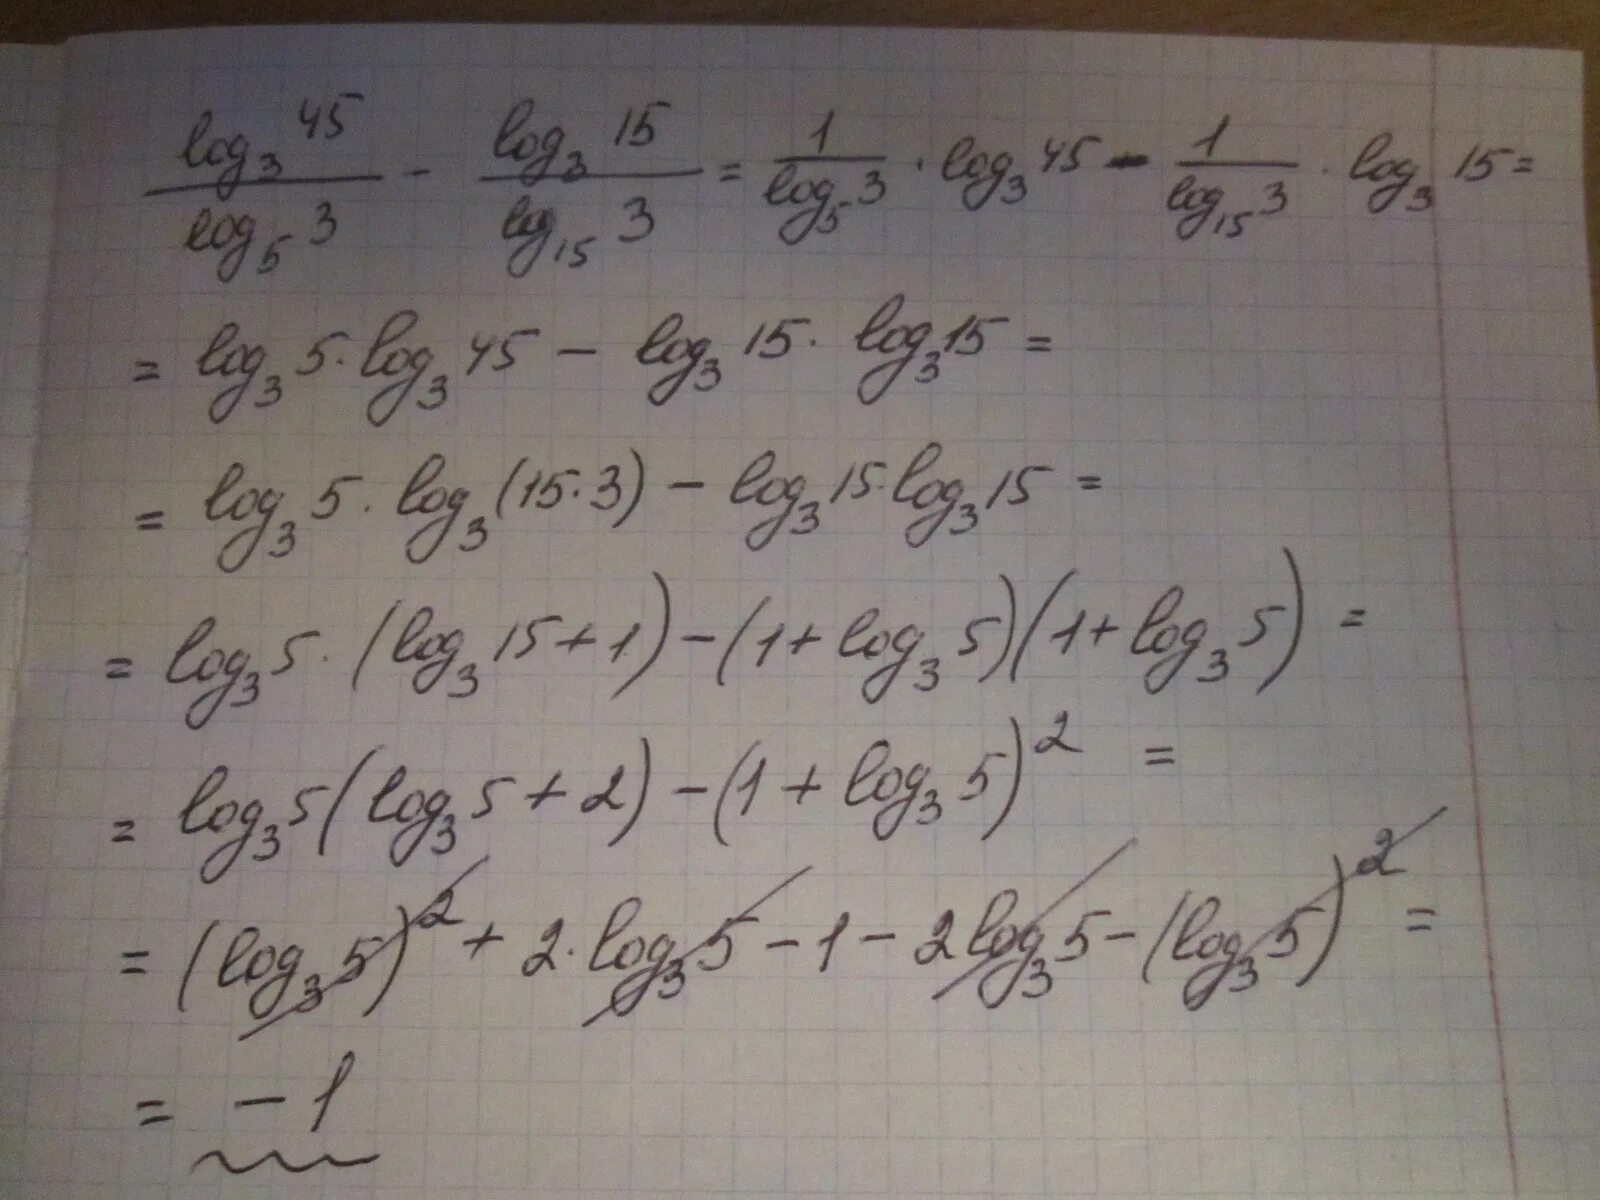 log₃45/log₅3 - log₃15/log₁₅3 = 1/log₅3 · log₃45 - 1/log₁₅3 · log₃15 =
= log₃5 · log₃45 - log₃15 · log₃15 =
= log₃5 · log₃(15·3) - log₃15 · log₃15 =
= log₃5 · (log₃15 + 1) - (1 + log₃5)(1 + log₃5) =
= log₃5(log₃5 + 2) - (1 + log₃5)² =
= (log₃5)² + 2 · log₃5 - 1 - 2log₃5 - (log₃5)² =
= -1